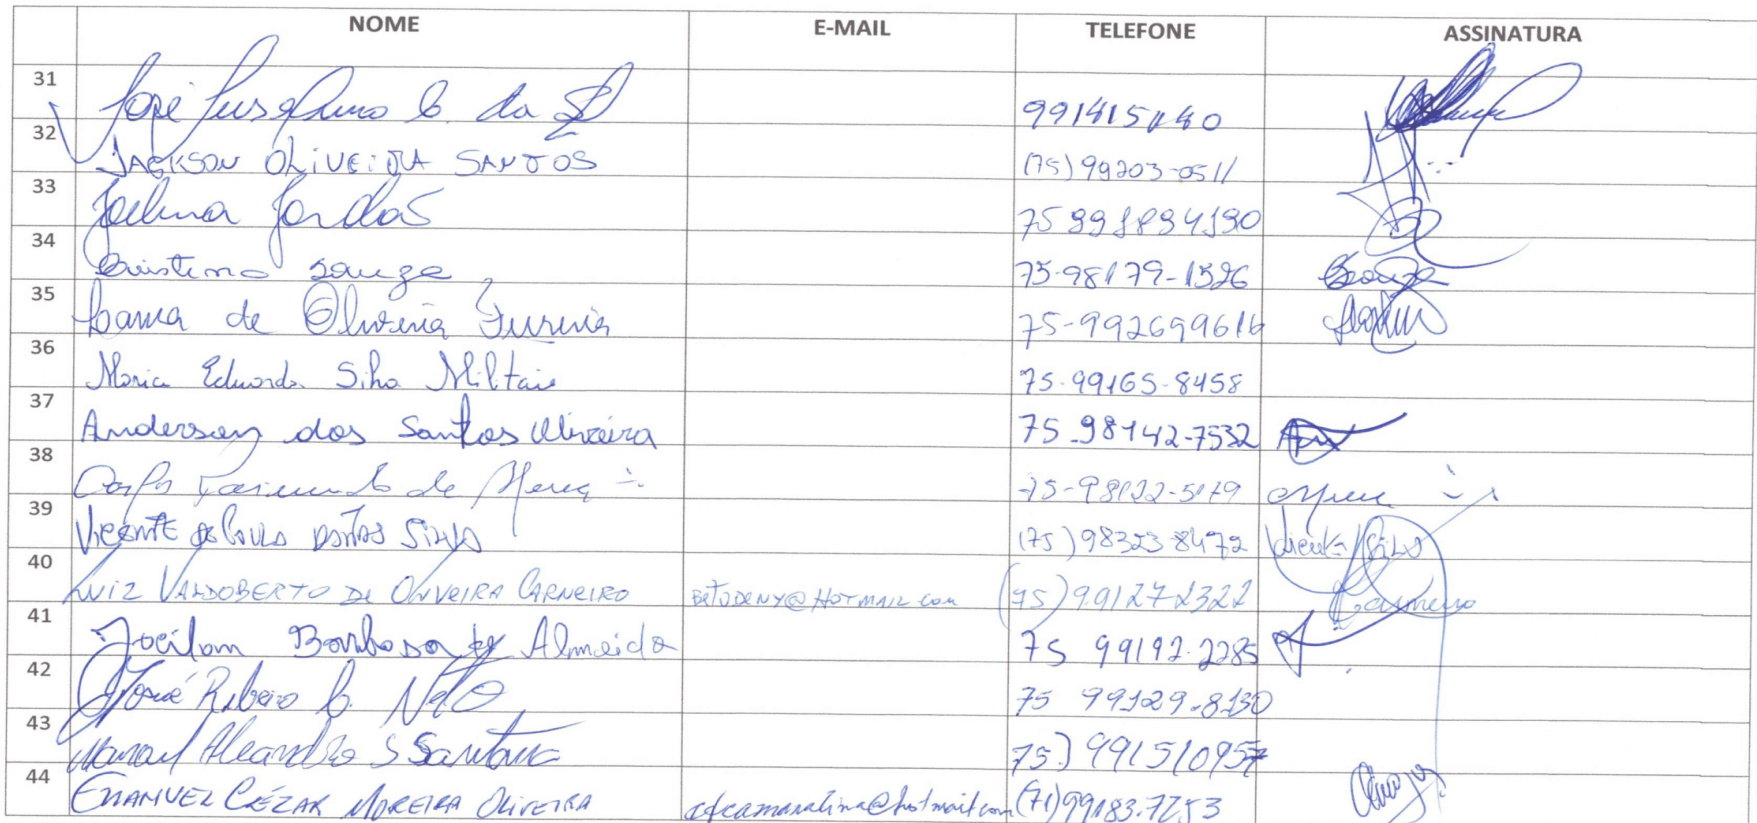 NOME E-MAIL TELEFONE ASSINATURA
31 José C. da 
32 JACKSON OLIVEIRA SANTOS (75) 99203-0511
33 Joelma 75 991894190
34 Cristina Souza 75-98179-1526 Souza
35 de Oliveira 75-992699616
36 Maria Eduarda Silva 75-99165-8458
37 Anderson dos Santos Oliveira 75-98142-7532
38 de 75-98122-5179
39 Vicente de Paula Dantas Silva (75) 98323-8472 Vicente Silva
40 LUIZ VALDOBERTO DE OLIVEIRA CARNEIRO BETODENY@HOTMAIL.com (75) 991272322 Carneiro
41 Joeilom Barbosa de Almeida 75 99192-2285
42 Josué Ribeiro C. Neto 75 99129-8130
43 Manoel S Santana 75) 991510957
44 EMANUEL CÉZAR MOREIRA OLIVEIRA cfcamaralina@hotmail.com (71) 99183-7253